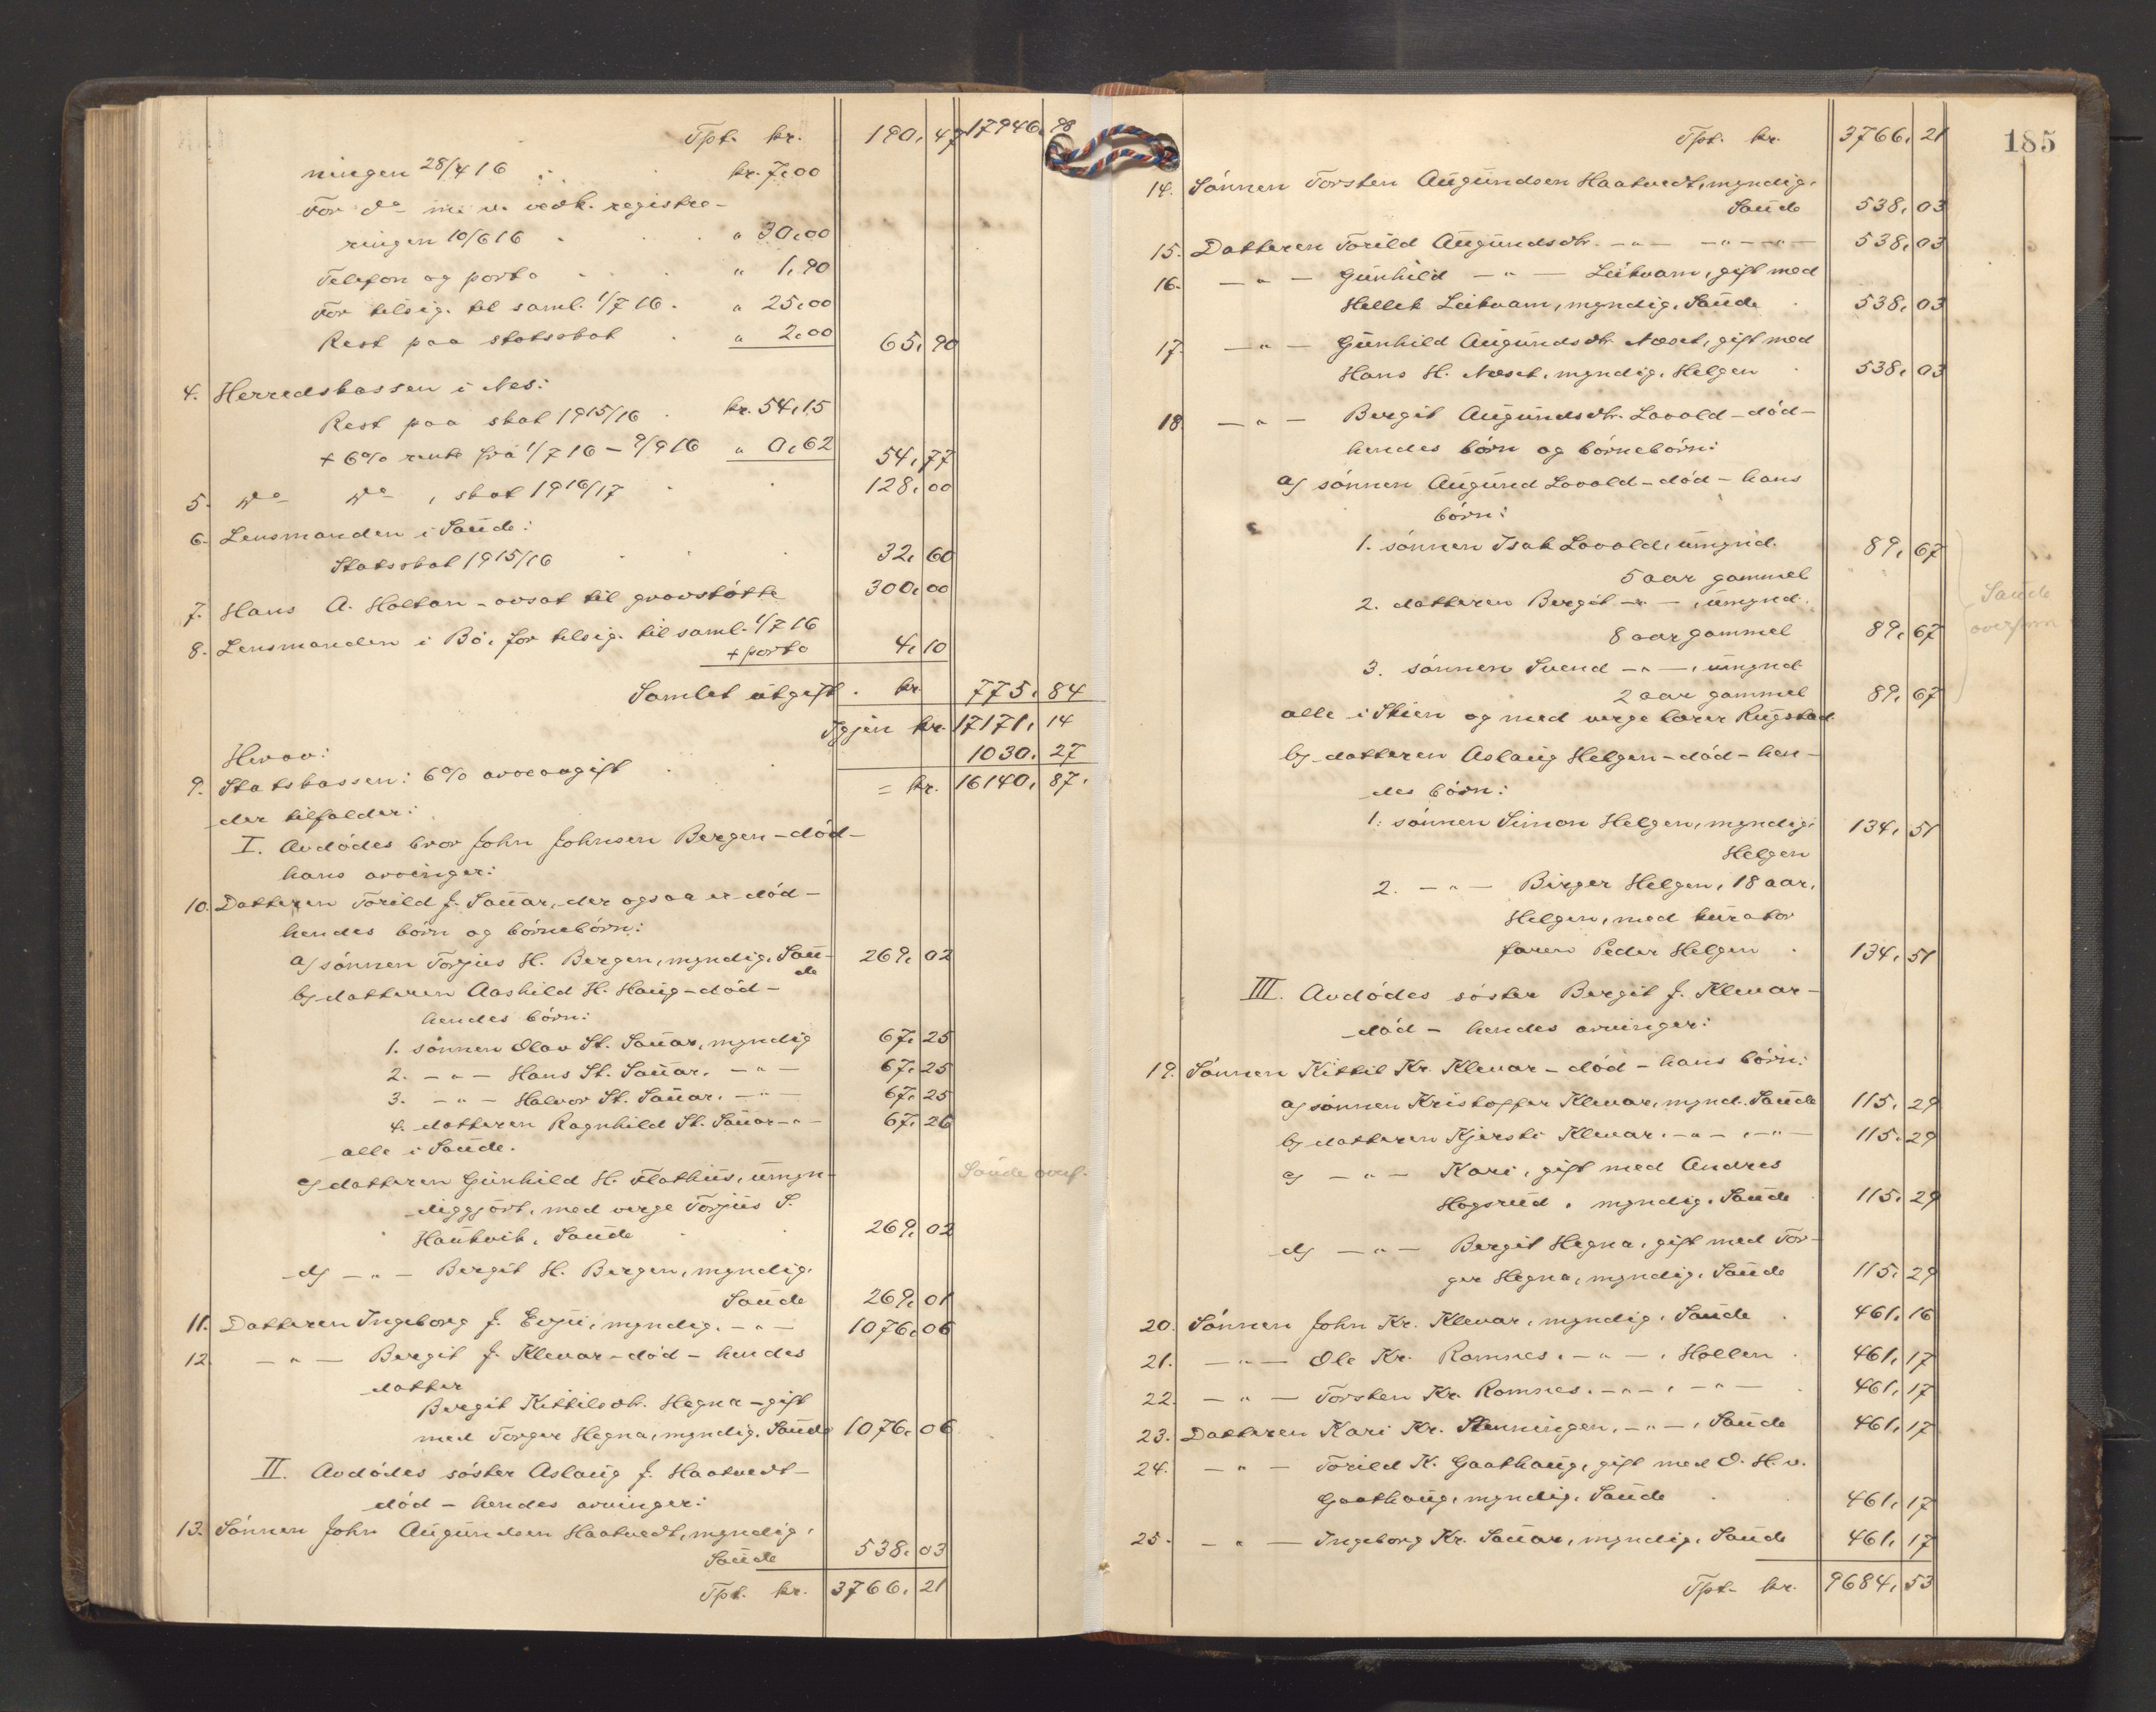 Tpt. kr. 190,47 17946,98
ningen 28/4 16 . . kr. 7,00
For do m. v. vedk. registre-
ringen 10/6 16 . . . " 30,00
Telefon og porto . . . " 1,90
For tilsig. til saml. 1/7 16 . " 25,00
Rest paa statsskat . " 2,00 65,90
4. Herredskassen i Nes:
Rest paa skat 1915/16 . kr. 54,15
+ 6% rente fra 1/7 16 - 9/9 16 " 0,62 54,77
5. Do Do , skat 1916/17 . . 128,00
6. Lensmanden i Saude:
Statsskat 1915/16 . . . 32,60
7. Hans A. Holtan - avsat til gravstøtte 300,00
8. Lensmanden i Bø, for tilsig. til saml. 1/7 16
+ porto 4,10
Samlet utgift . kr. 775,84
Igjen kr. 17171,14
Herav:
9. Statskassen: 6% arveavgift . 1030,27
= kr. 16140,87.
der tilfalder:
I. Avdødes bror John Johnsen Bergen - død -
hans arvinger:
10. Datteren Torild J. Sauar, der ogsaa er død -
hendes børn og børnebørn:
a) sønnen Torjus H. Bergen, myndig, Sau- 269,02
de
b) datteren Aashild H. Haug - død -
hendes børn:
1. sønnen Olav St. Sauar, myndig 67,25
2. - " - Hans St. Sauar, - " - 67,25
3. - " - Halvor St. Sauar, - " - 67,25
4. datteren Ragnhild St. Sauar - " - 67,26
alle i Saude.
c) datteren Gunhild H. Flathus, umyn- Saude overf.
diggjort, med verge Torjus S.
Haukvik, Saude . 269,02
d) - " - Bergit H. Bergen, myndig,
Saude 269,01
11. Datteren Ingeborg J. Evju, myndig, - " - 1076,06
12. - " - Bergit J. Klevar - død - hendes
datter
Bergit Kittilsdt. Hegna - gift
med Torger Hegna, myndig, Saude 1076,06
II. Avdødes søster Aslaug J. Haatvedt -
død - hendes arvinger:
13. Sønnen John Augundsen Haatvedt, myndig,
Saude 538,03
Tpt. kr. 3766,21
185
Tpt. kr. 3766,21
14. Sønnen Torsten Augundsen Haatvedt, myndig,
Saude 538,03
15. Datteren Torild Augundsdtr. - " - - " - " - 538,03
16. - " - Gunhild - " - Leikvam, gift med
Hellek Leikvam, myndig, Saude . 538,03
17. - " - Gunhild Augundsdtr. Næset, gift med
Hans H. Næset, myndig, Helgen . 538,03
18. - " - Bergit Augundsdtr. Lovald - død -
hendes børn og børnebørn:
a) sønnen Augund Lovald - død - hans
børn:
1. sønnen Isak Lovald, umynd. 89,67
5 aar gammel
2. datteren Bergit - " - , umynd. Saude
8 aar gammel 89,67 overform
3. sønnen Svend - " - , umynd
2 aar gammel 89,67
alle i Skien og med verge lærer Rugstad.
b) datteren Aslaug Helgen - død - hen-
des børn:
1. sønnen Simon Helgen, myndig, 134,51
Helgen
2. - " - Birger Helgen, 18 aar,
Helgen, med kurator
faren Peder Helgen . 134,51
III. Avdødes søster Bergit J. Klevar -
død - hendes arvinger:
19. Sønnen Kittil Kr. Klevar - død - hans børn:
a) sønnen Kristoffer Klevar, mynd. Saude 115,29
b) datteren Kjersti Klevar, - " - , - " - 115,29
c) - " - Kari, gift med Andres
Hogsrud, myndig, Saude . 115,29
d) - " - Bergit Hegna, gift med Tor-
ger Hegna, myndig, Saude 115,29
20. Sønnen John Kr. Klevar, myndig, Saude . 461,16
21. - " - Ole Kr. Romnes, - " - , Hollen . 461,17
22. - " - Torsten Kr. Romnes, - " - , - " - . 461,17
23. Datteren Kari Kr. Stenningen, - " - , Saude 461,17
24. - " - Torild K. Gaathaug, gift med O. H. v.
Gaathaug, myndig, Saude . . 461,17
25. - " - Ingeborg Kr. Sauar, myndig, Saude 461,17
Tpt. kr. 9684,53